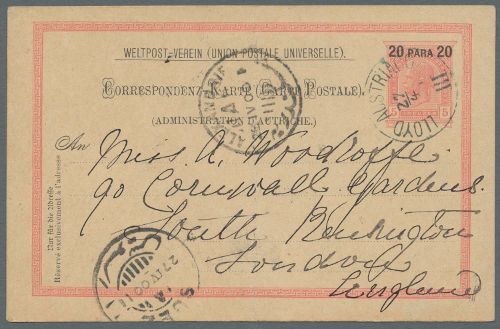 WELTPOST-VEREIN (UNION POSTALE UNIVERSELLE).
20 PARA 20
CORRESPONDENZ-KARTE (CARTE POSTALE).
(ADMINISTRATION D'AUTRICHE).
5 5
LLOYD AUSTRIACO
III
27
An
Miss A. Woodroffe
90 Cornwall Gardens
South Kensington
London
England
Nur für die Adresse
Réservé exclusivement à l'adresse
27 IV 00